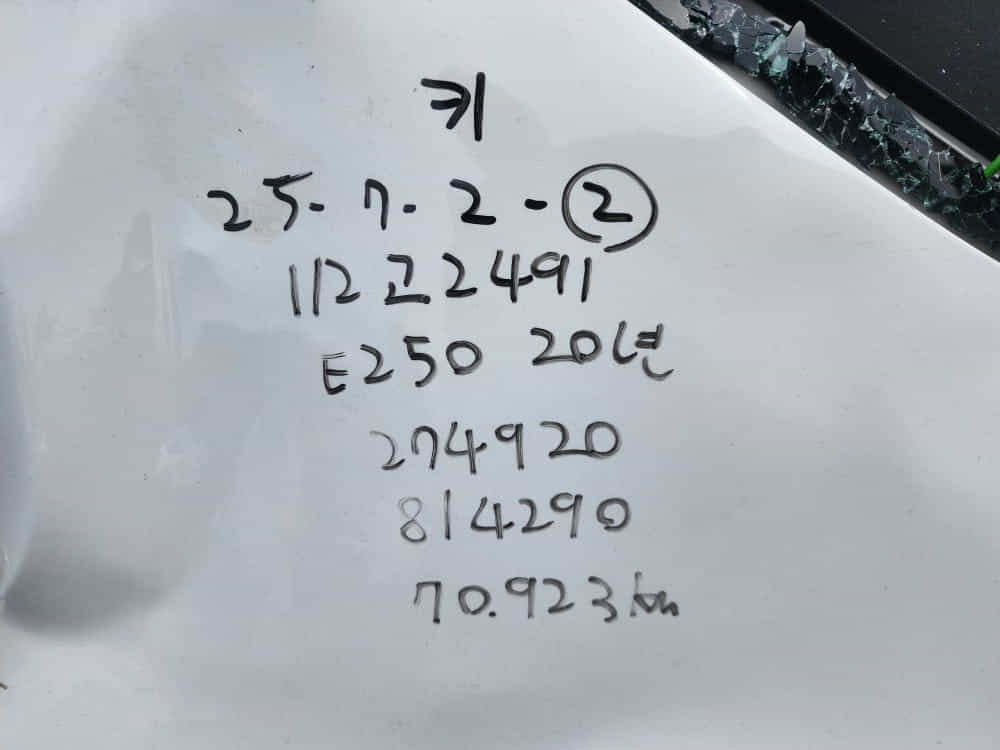 키
25. 7. 2 - ②
112고2491
E250 20년
274920
814290
70.923km